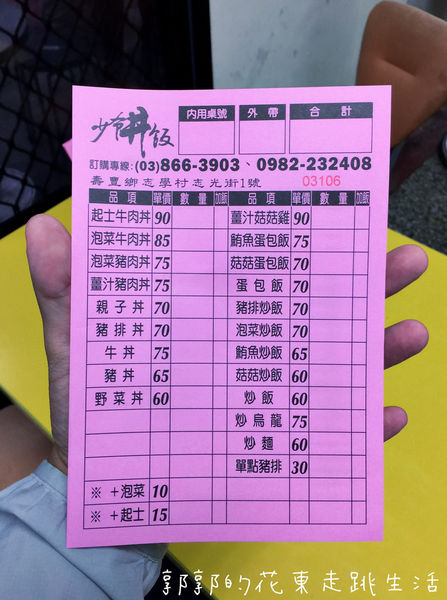 少爺丼飯
內用桌號 外帶 合計
訂購專線:(03)866-3903、0982-232408
壽豐鄉志學村志光街1號 03106
品項 單價 數量 加飯 品項 單價 數量 加飯
起士牛肉丼 90 薑汁菇菇雞 90
泡菜牛肉丼 85 鮪魚蛋包飯 75
泡菜豬肉丼 75 菇菇蛋包飯 70
薑汁豬肉丼 75 蛋包飯 70
親子丼 70 豬排炒飯 70
豬排丼 70 泡菜炒飯 70
牛丼 75 鮪魚炒飯 65
豬丼 65 菇菇炒飯 60
野菜丼 60 炒飯 60
炒烏龍 75
炒麵 60
單點豬排 30
※ +泡菜 10
※ +起士 15
郭郭的花東走跳生活